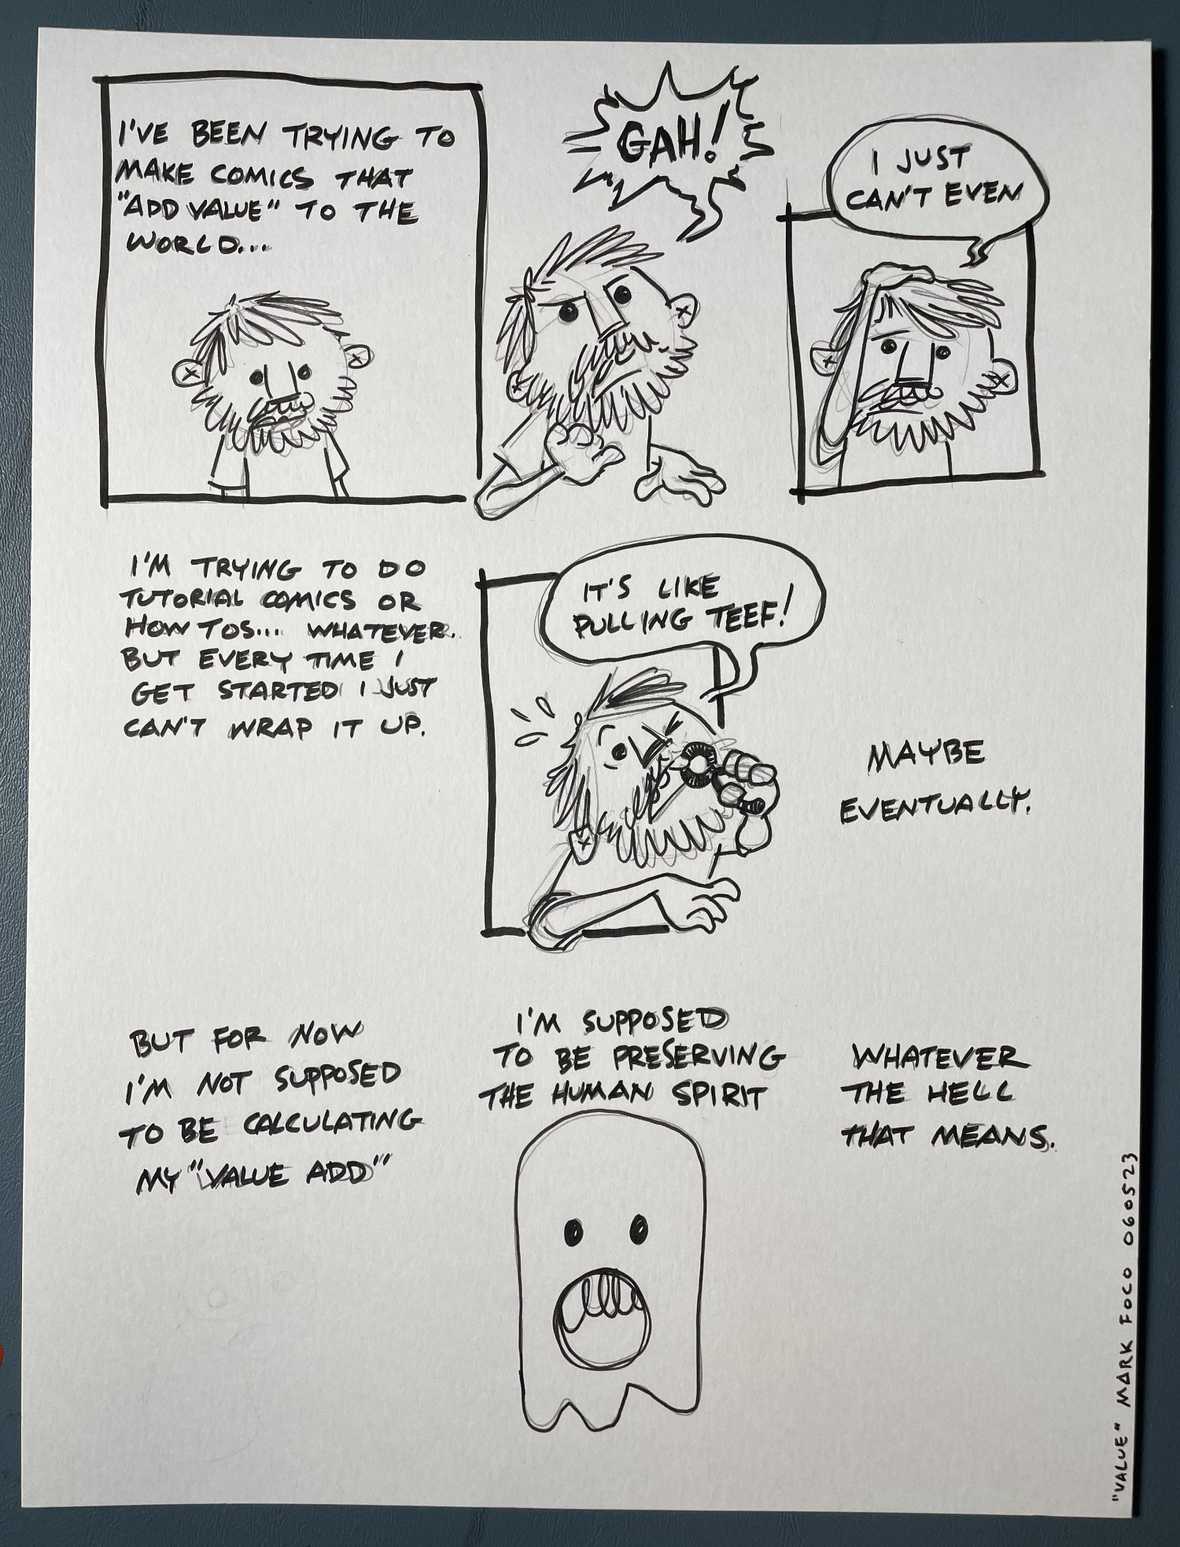 I'VE BEEN TRYING TO
MAKE COMICS THAT
"ADD VALUE" TO THE
WORLD...
GAH!
I JUST
CAN'T EVEN
I'M TRYING TO DO
TUTORIAL COMICS OR
HOW TOS... WHATEVER.
BUT EVERY TIME I
GET STARTED I JUST
CAN'T WRAP IT UP.
IT'S LIKE
PULLING TEEF!
MAYBE
EVENTUALLY.
BUT FOR NOW
I'M NOT SUPPOSED
TO BE CALCULATING
MY "VALUE ADD"
I'M SUPPOSED
TO BE PRESERVING
THE HUMAN SPIRIT
WHATEVER
THE HELL
THAT MEANS.
"VALUE" MARK FOCO 060523